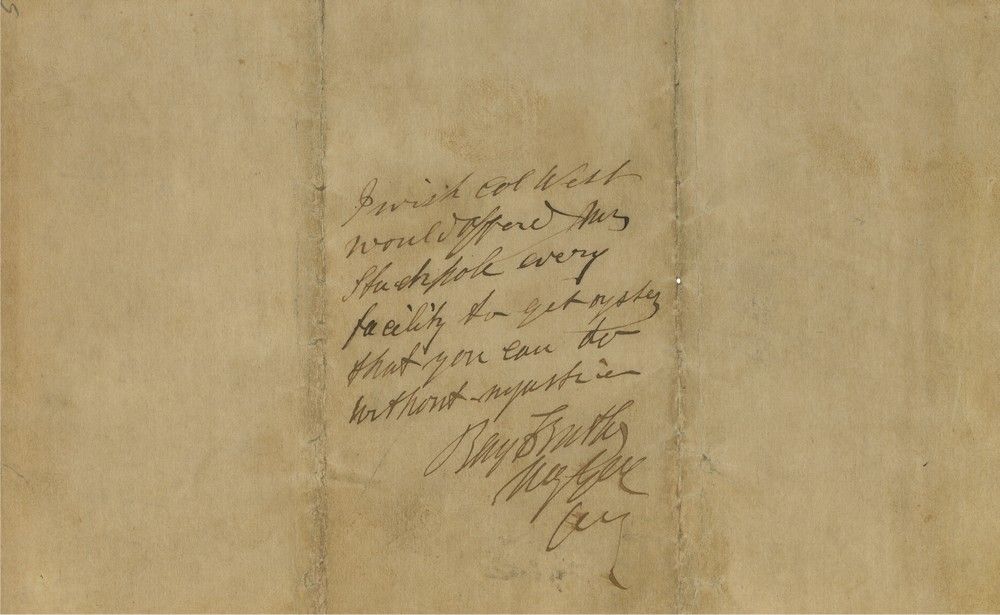 I wish Col West
would afford Mrs
Stackpole every
facility to get oysters
that you can do
without injustice
Benj F Butler
Maj Gen
Com